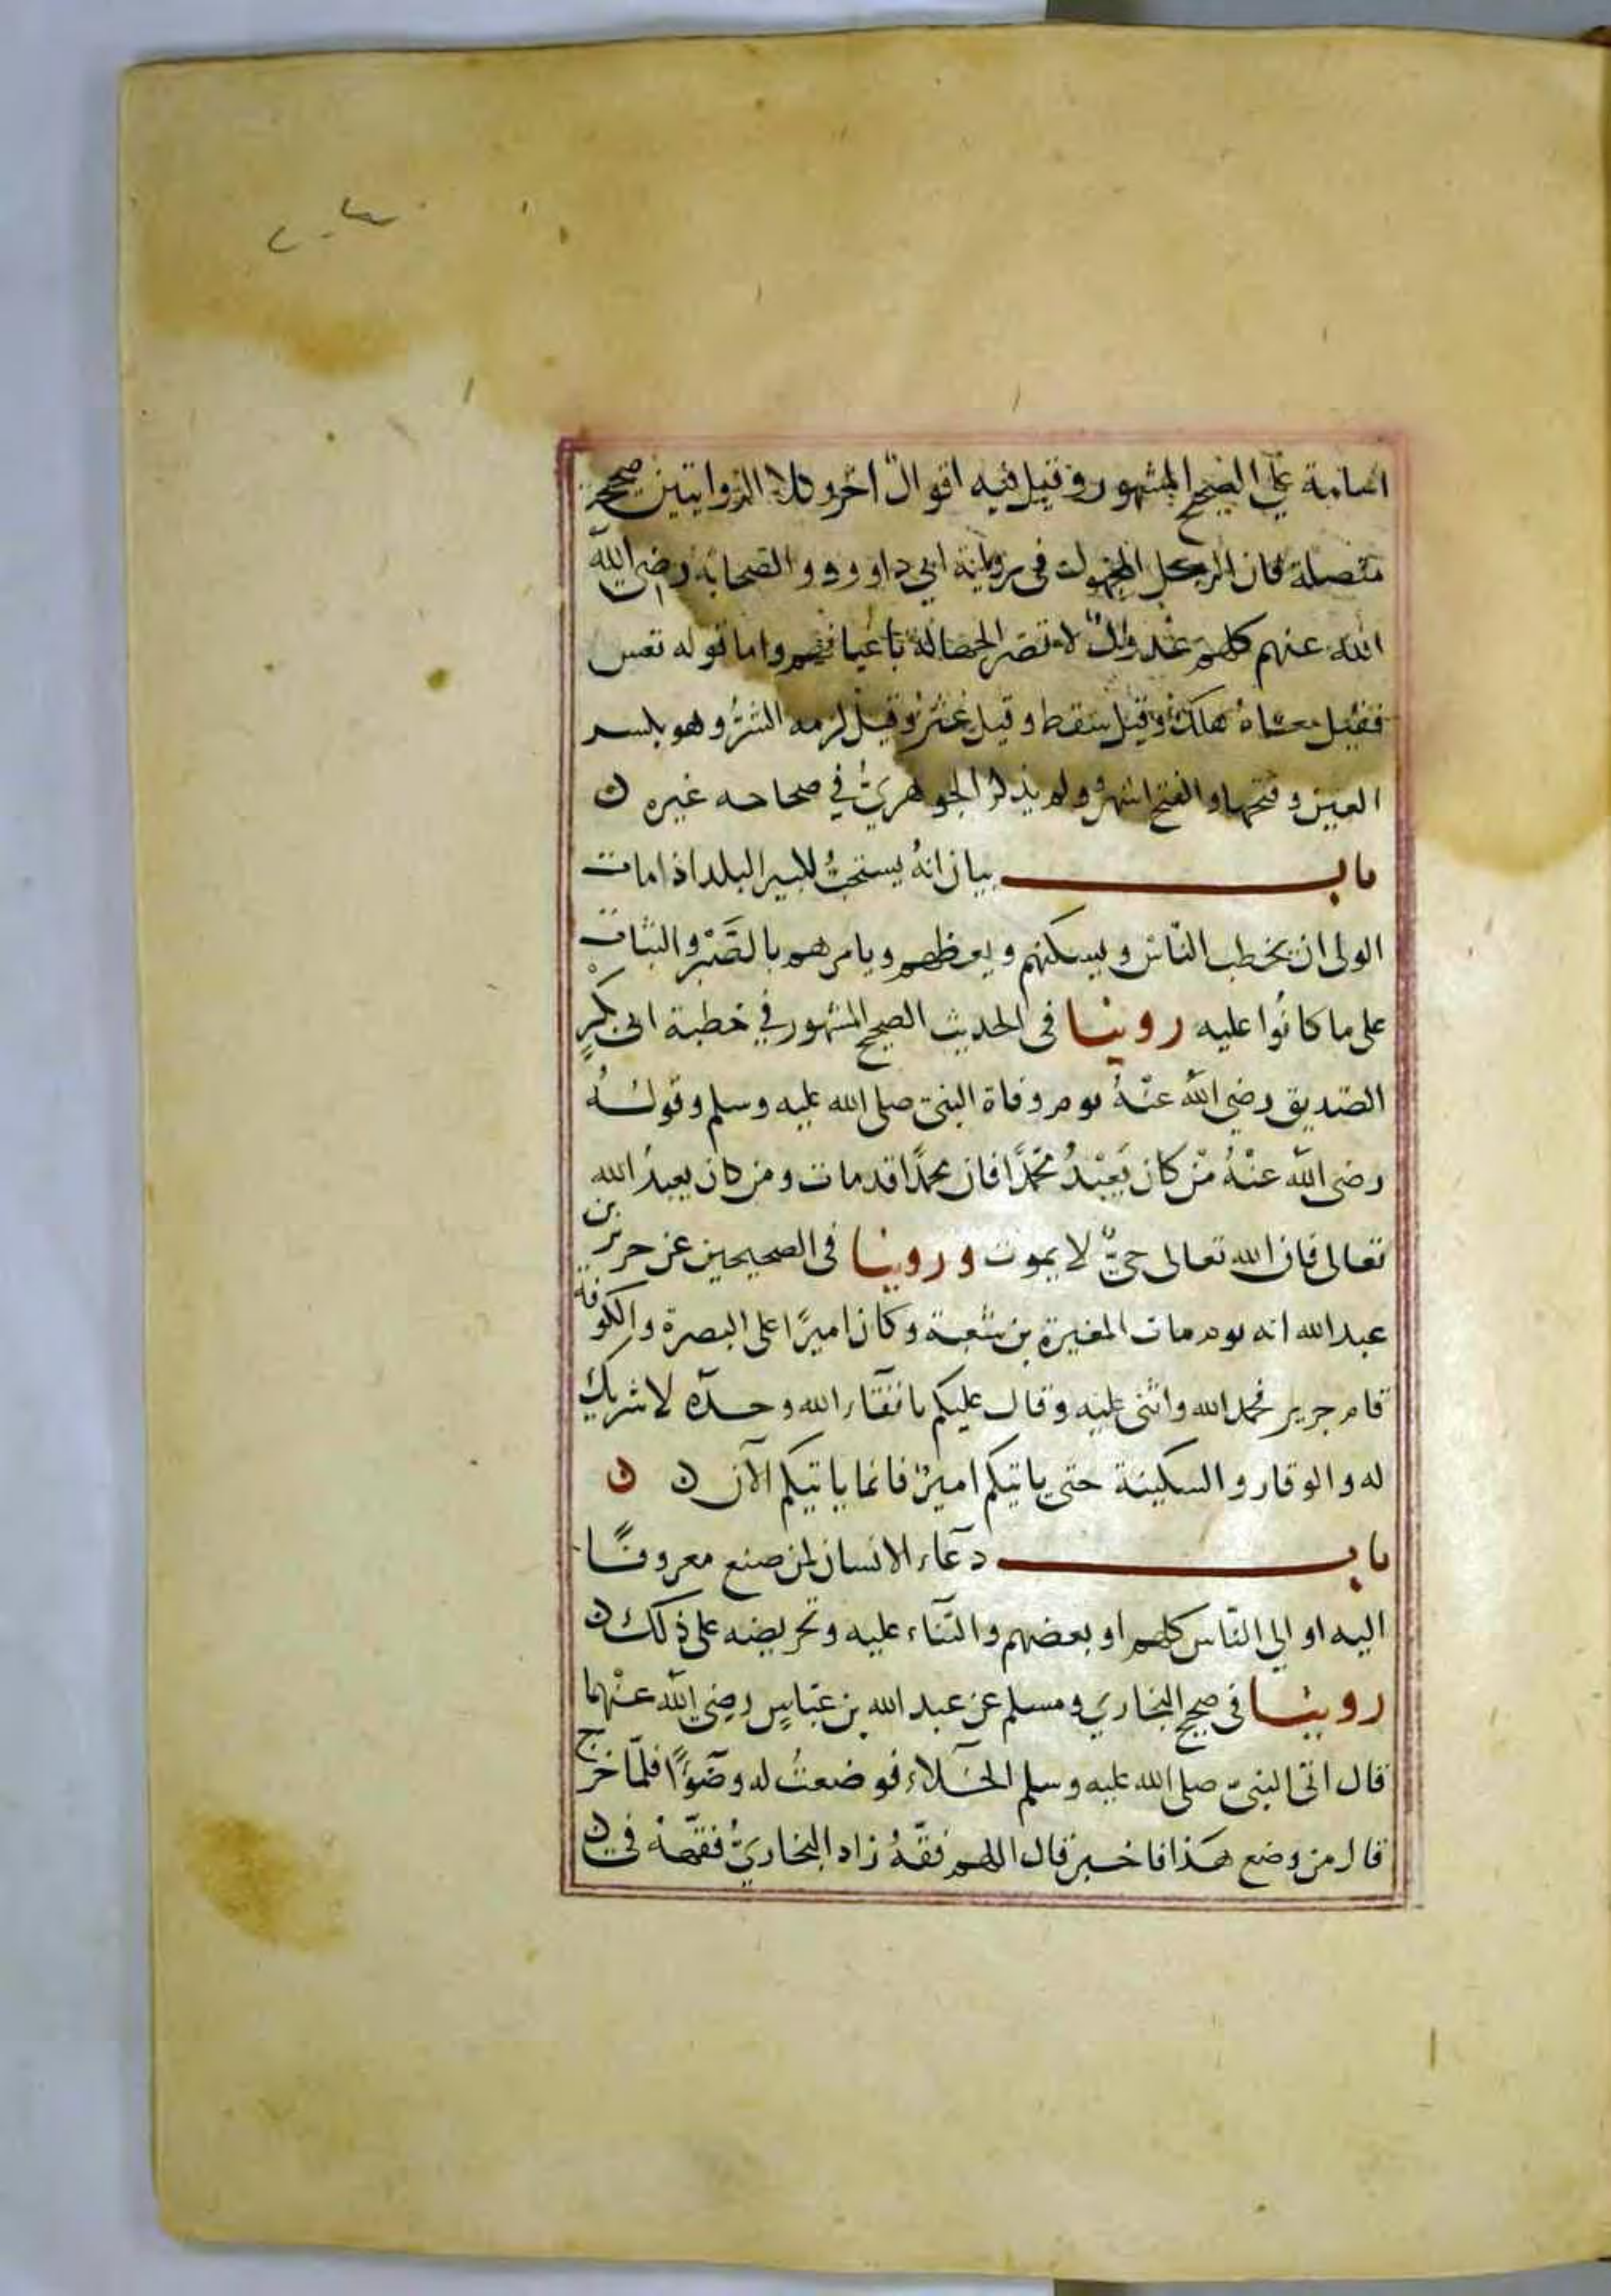 اسامة على الصحيح المشهور وقيل فيه اقوالٌ اخر وكلا الروايتين صحيحة
متصلة فان الرجل المجهول في رواية ابي داوود والصحابة رضي الله
الله عنهم كلهم عدولٌ لا تضر الجهالة باعيانهم واما قوله تعس
فقيل معناهُ هلك وقيل سقط وقيل عثر وقيل لزمه الشرُّ وهو بكسر
العين وفتحها والفتح اشهر ولم يذكر الجوهريُّ في صحاحه غيره ن
باب بيان انهُ يستحبُّ لكبير البلد اذا مات
الوالى ان يخطب النّاسَ ويسكنهم ويعظهم ويامرهم بالصَّبْرِ والثبات
على ما كانُوا عليه روينا فى الحديث الصحيح المشهور في خطبة ابى بكْرٍ
الصّديق رضي اللهُ عنْهُ يوم وفاة النبىّ صلى الله عليه وسلم وقولهُ
رضى اللهُ عنْهُ مَنْ كان يَعْبُدُ محمَّدًا فان محمدًا قد مات ومن كان يعبدُ الله
تعالى فان الله تعالى حىٌّ لا يموت وروينا فى الصحيحين عن جرير بن
عبد الله انه يوم مات المغيرة بن شعبة وكان اميرًا على البصرة والكوفة
قام جرير فحمد الله واثنى عليه وقال عليكم باتقاء الله وحده لا شريك
له والوقار والسكينة حتى ياتيكم اميرٌ فانما ياتيكم الآن ن ن
باب دعاء الانسان لمن صنع معروفًا
اليه او الي النّاس كلهم او بعضهم والثناء عليه وتحريضه على ذلك ن
روينا فى صحيح البخاري ومسلم عن عبد الله بن عبّاسٍ رضي الله عنْهما
قال اتى النبىّ صلى الله عليه وسلم الخلاء فوضعتُ له وضوءًا فلمّا خرج
قال من وضع هذا فاخبر قال اللهم فقّهْهُ زاد البخاريُّ فقّههُ فى ن